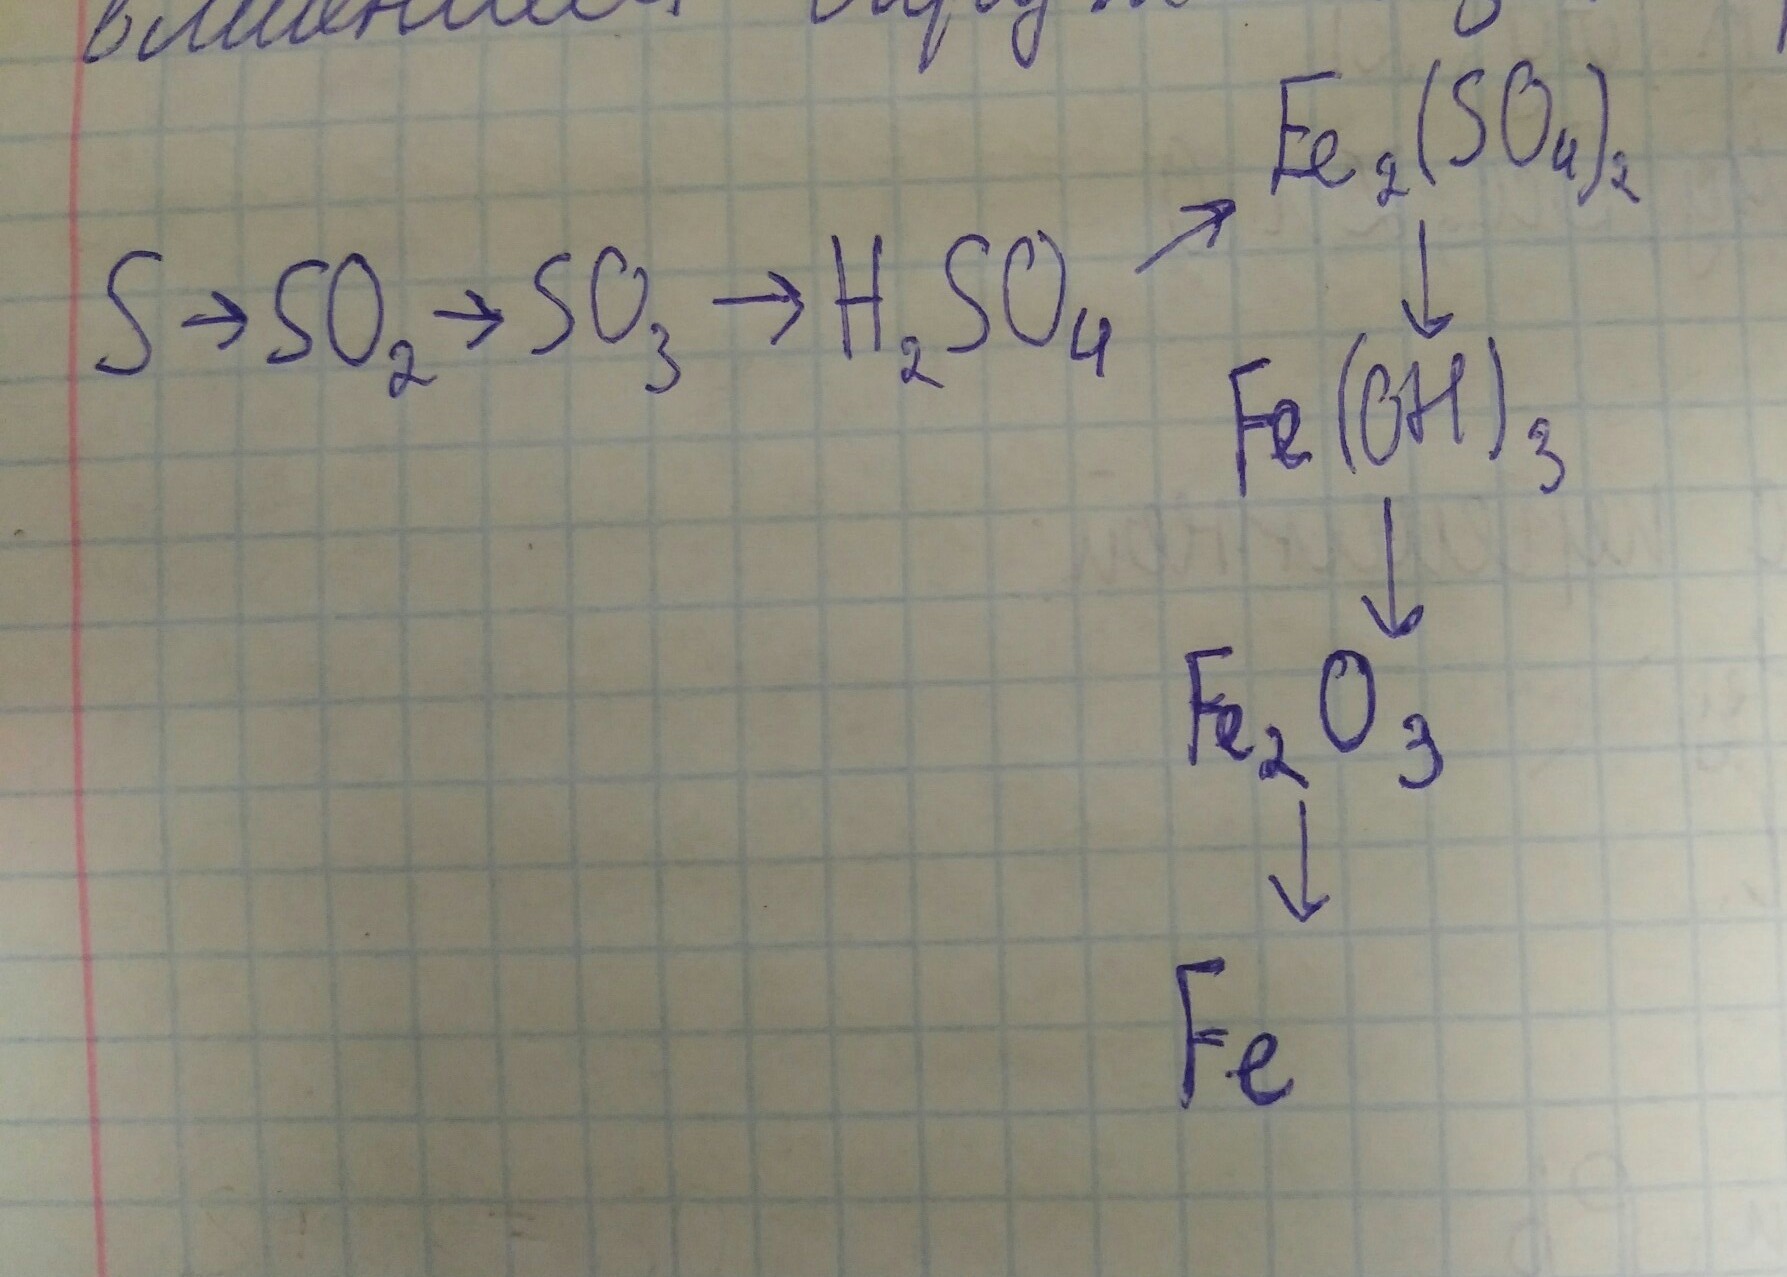 Fe₂(SO₄)₂
S → SO₂ → SO₃ → H₂SO₄ ↗
↓
Fe(OH)₃
↓
Fe₂O₃
↓
Fe